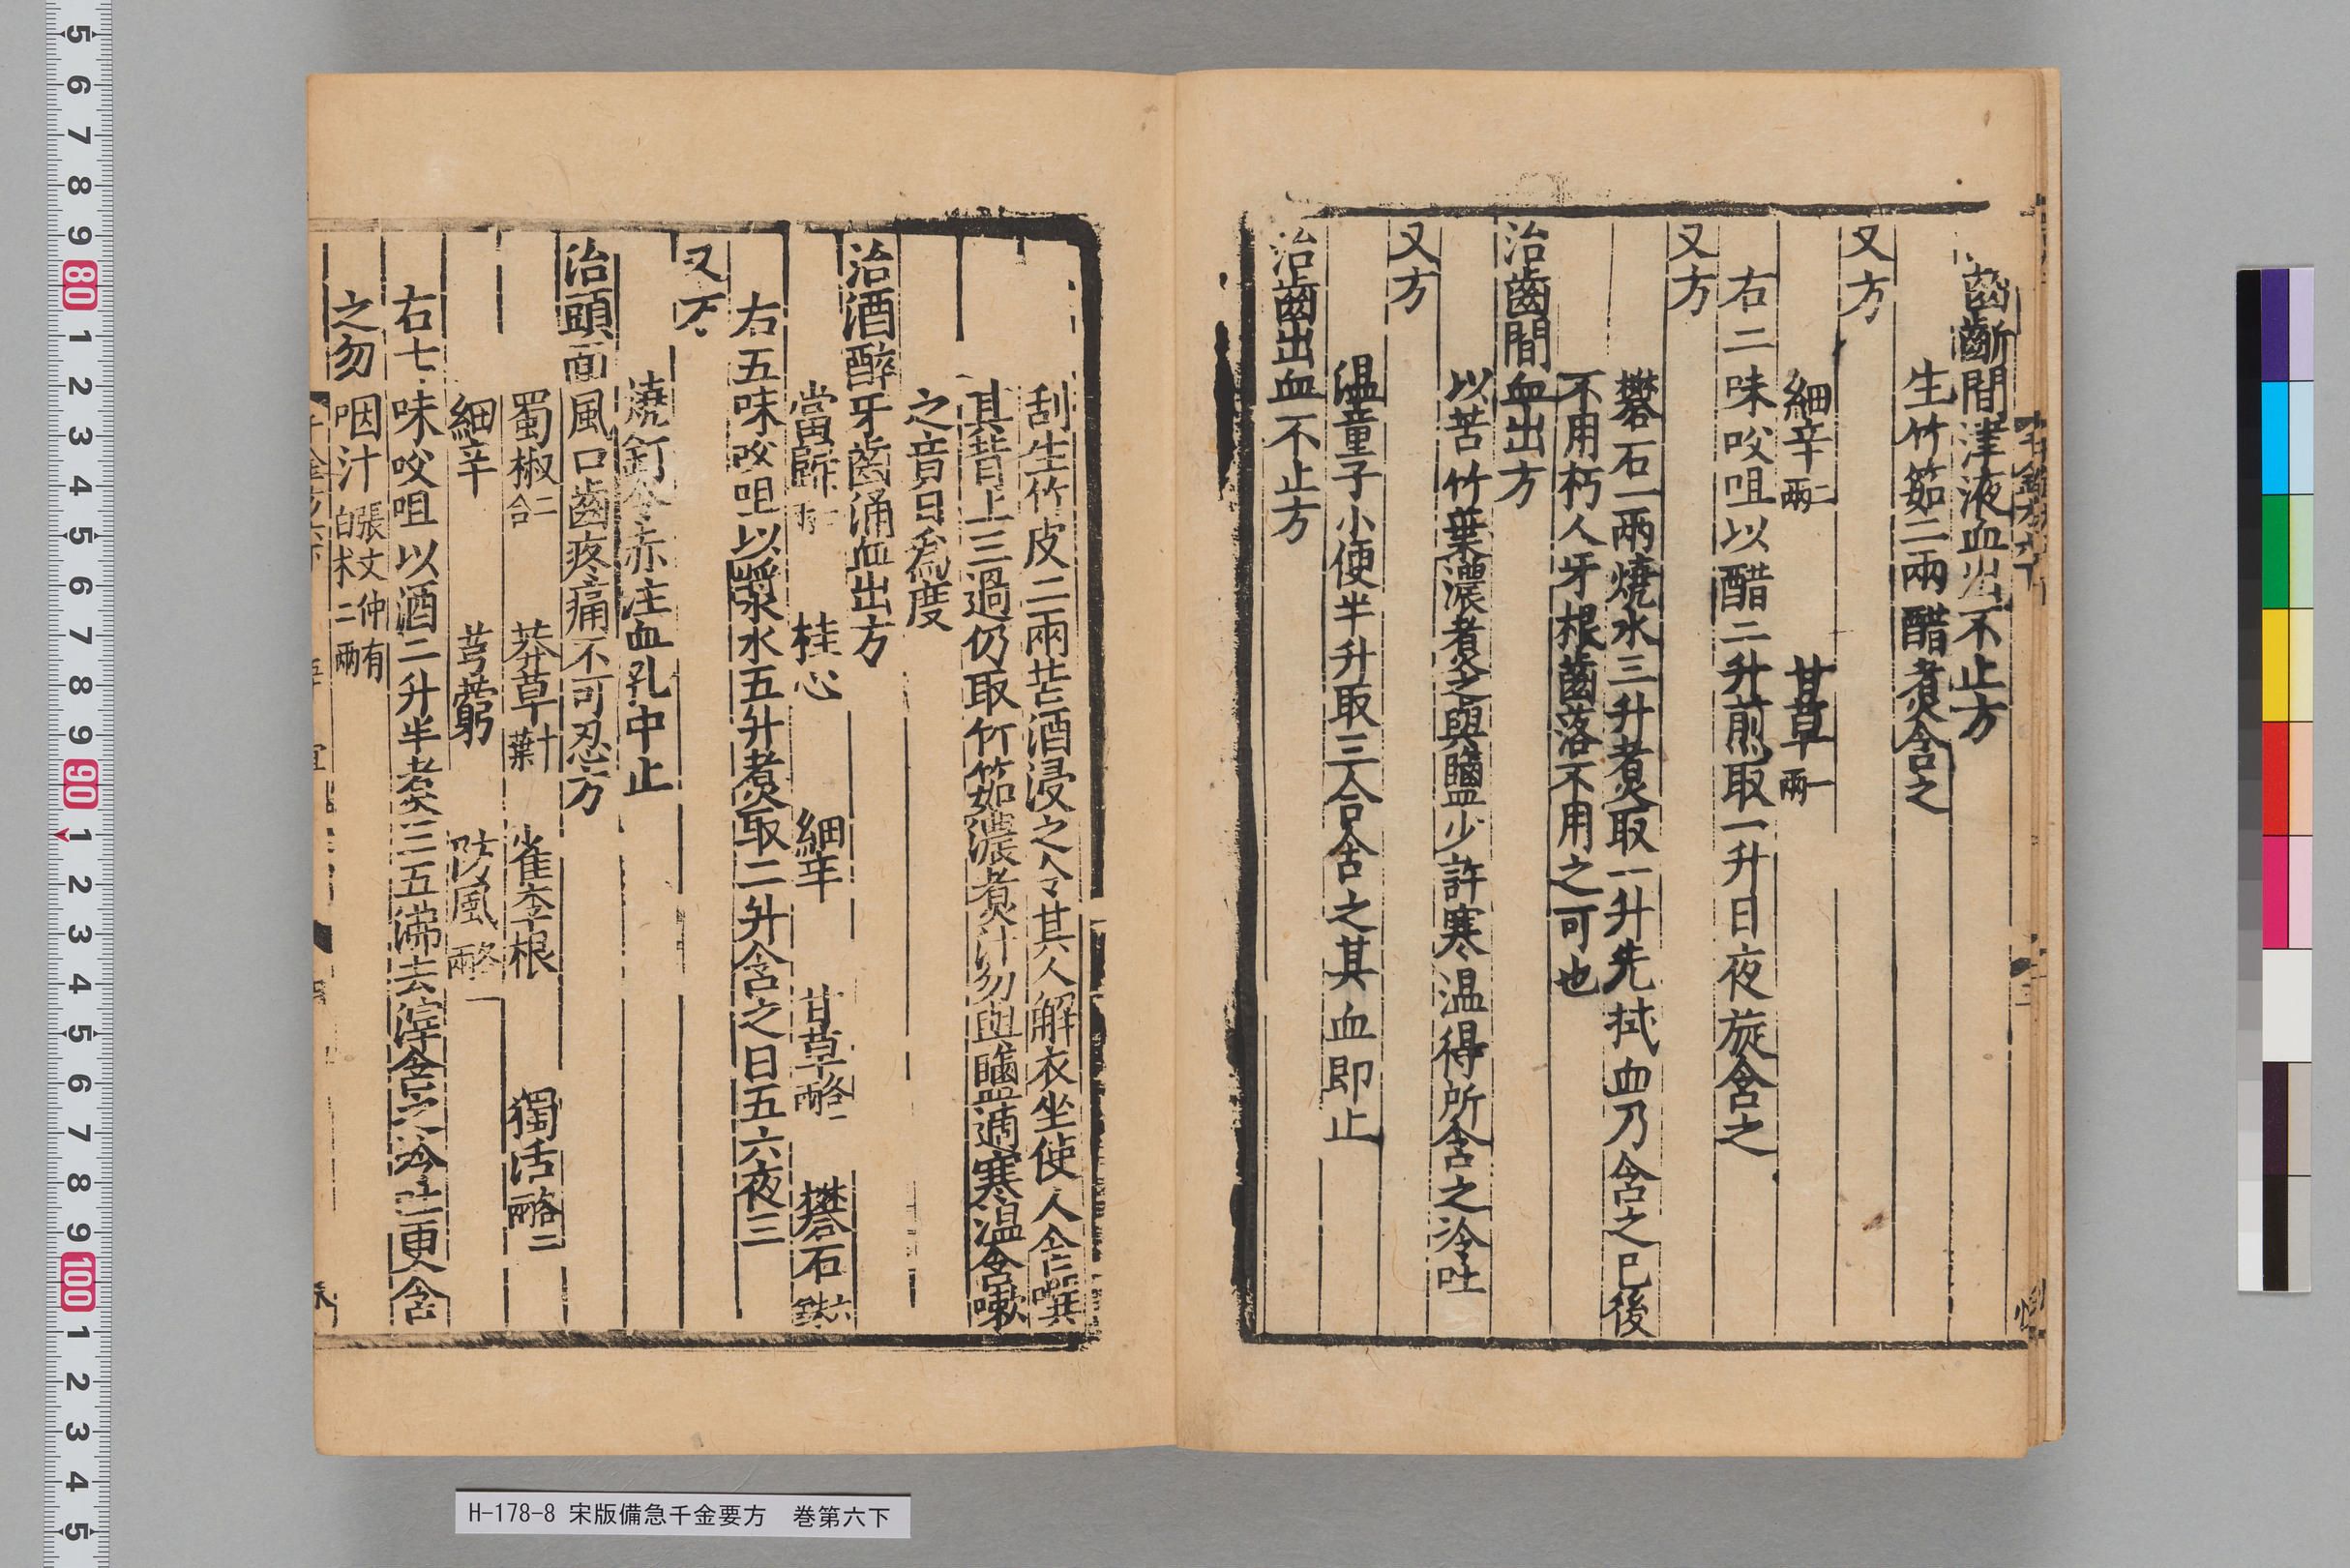 齒齗間津液血出不止方
生竹筎二兩醋煮含之
又方
細辛二兩 甘草一兩
右二味㕮咀以醋二升煎取一升日夜旋含之
又方
礬石一兩燒水三升煮取一升先拭血乃含之已後
不用朽人牙根齒落不用之可也
治齒間血出方
以苦竹葉濃煮之與鹽少許寒温得所含之冷吐
又方
温童子小便半升取三合含之其血即止
治齒出血不止方
刮生竹皮二兩苦酒浸之令其人解衣坐使人含噀
其背上三過仍取竹筎濃煮汁勿與鹽適寒温含漱
之竟日爲度
治酒醉牙齒涌血出方
當歸二兩 桂心 細辛 甘草各一兩 礬石六銖
右五味㕮咀以漿水五升煮取二升含之日五六夜三
又方
燒釘令赤注血孔中止
治頭面風口齒疼痛不可忍方
蜀椒二合 莽草十葉 雀李根 獨活各二兩
細辛 芎藭 防風各一兩
右七味㕮咀以酒二升半煮三五沸去滓含之冷吐更含
之勿咽汁張文仲有白朮二兩
H-178-8 宋版備急千金要方 巻第六下
5
6
7
8
9
80
1
2
3
4
5
6
7
8
9
90
1
2
3
4
5
6
7
8
9
100
1
2
3
4
5